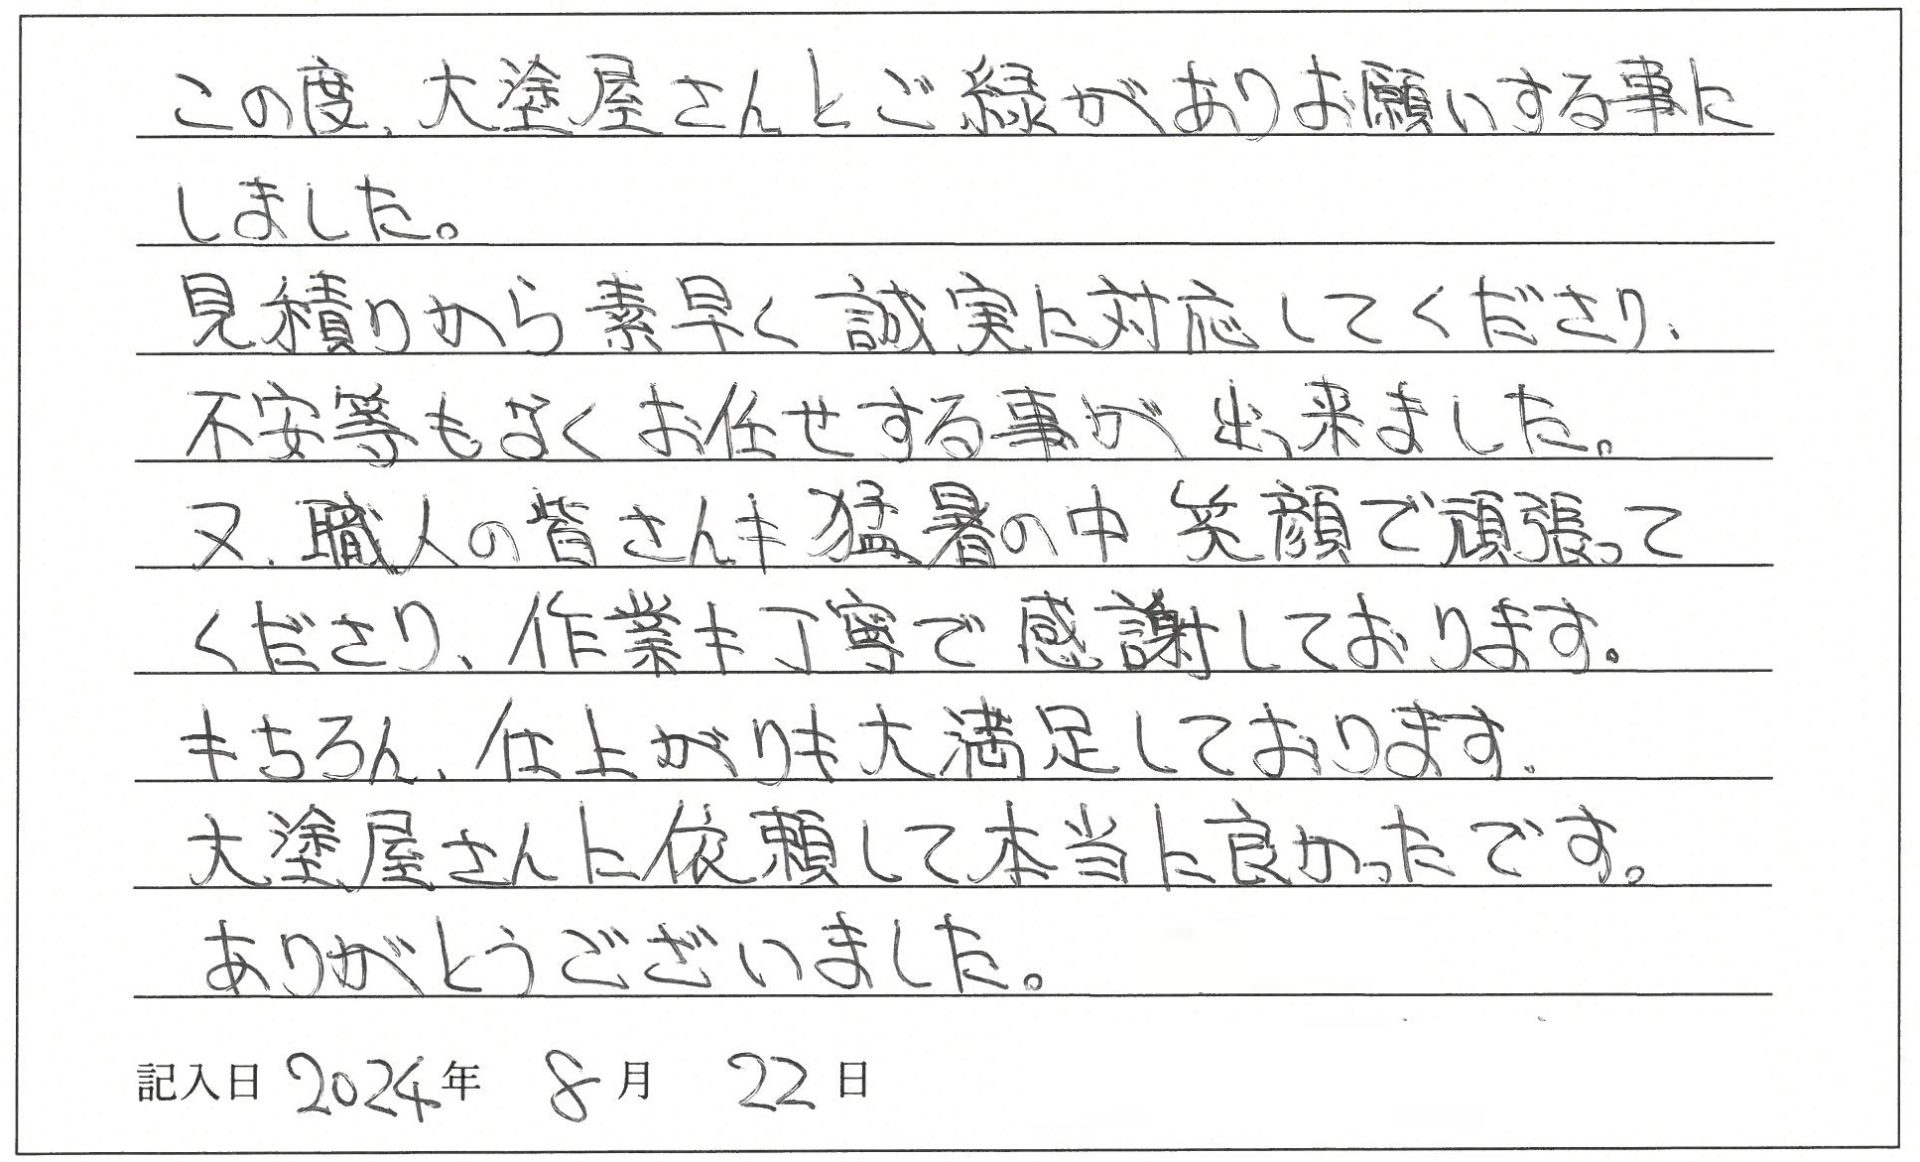 この度、大塗屋さんとご縁がありお願いする事に
しました。
見積りから素早く誠実に対応してくださり、
不安等もなくお任せする事が出来ました。
又、職人の皆さんも猛暑の中笑顔で頑張って
くださり、作業も丁寧で感謝しております。
もちろん、仕上がりも大満足しております。
大塗屋さんに依頼して本当に良かったです。
ありがとうございました。
記入日 2024年 8月 22日